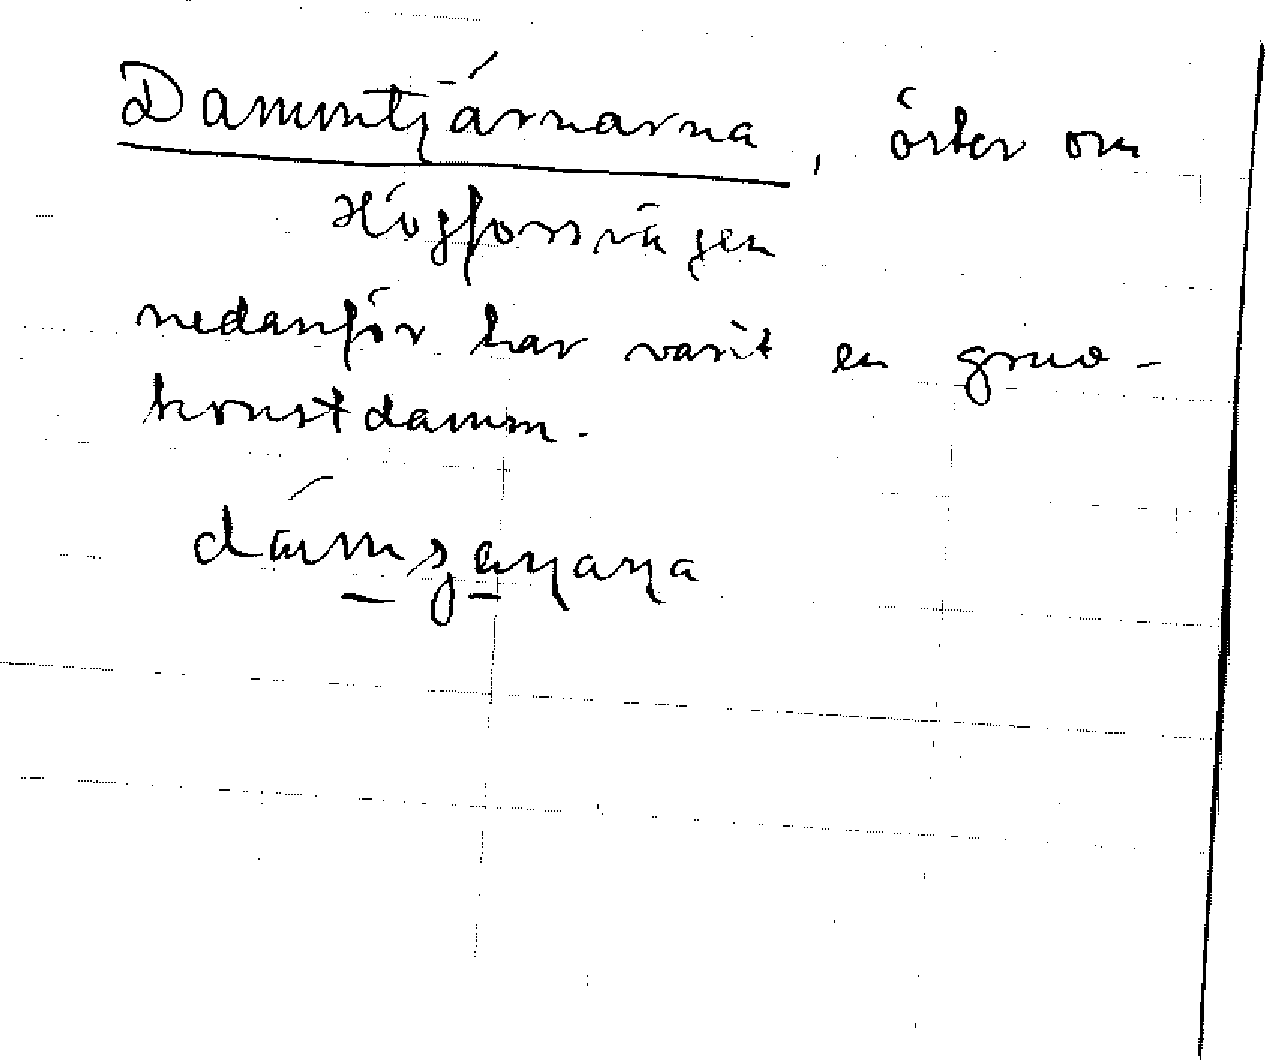 Dammtjärnarna, öster om
Högforsvägen
nedanför har varit en gruv-
konstdamm.